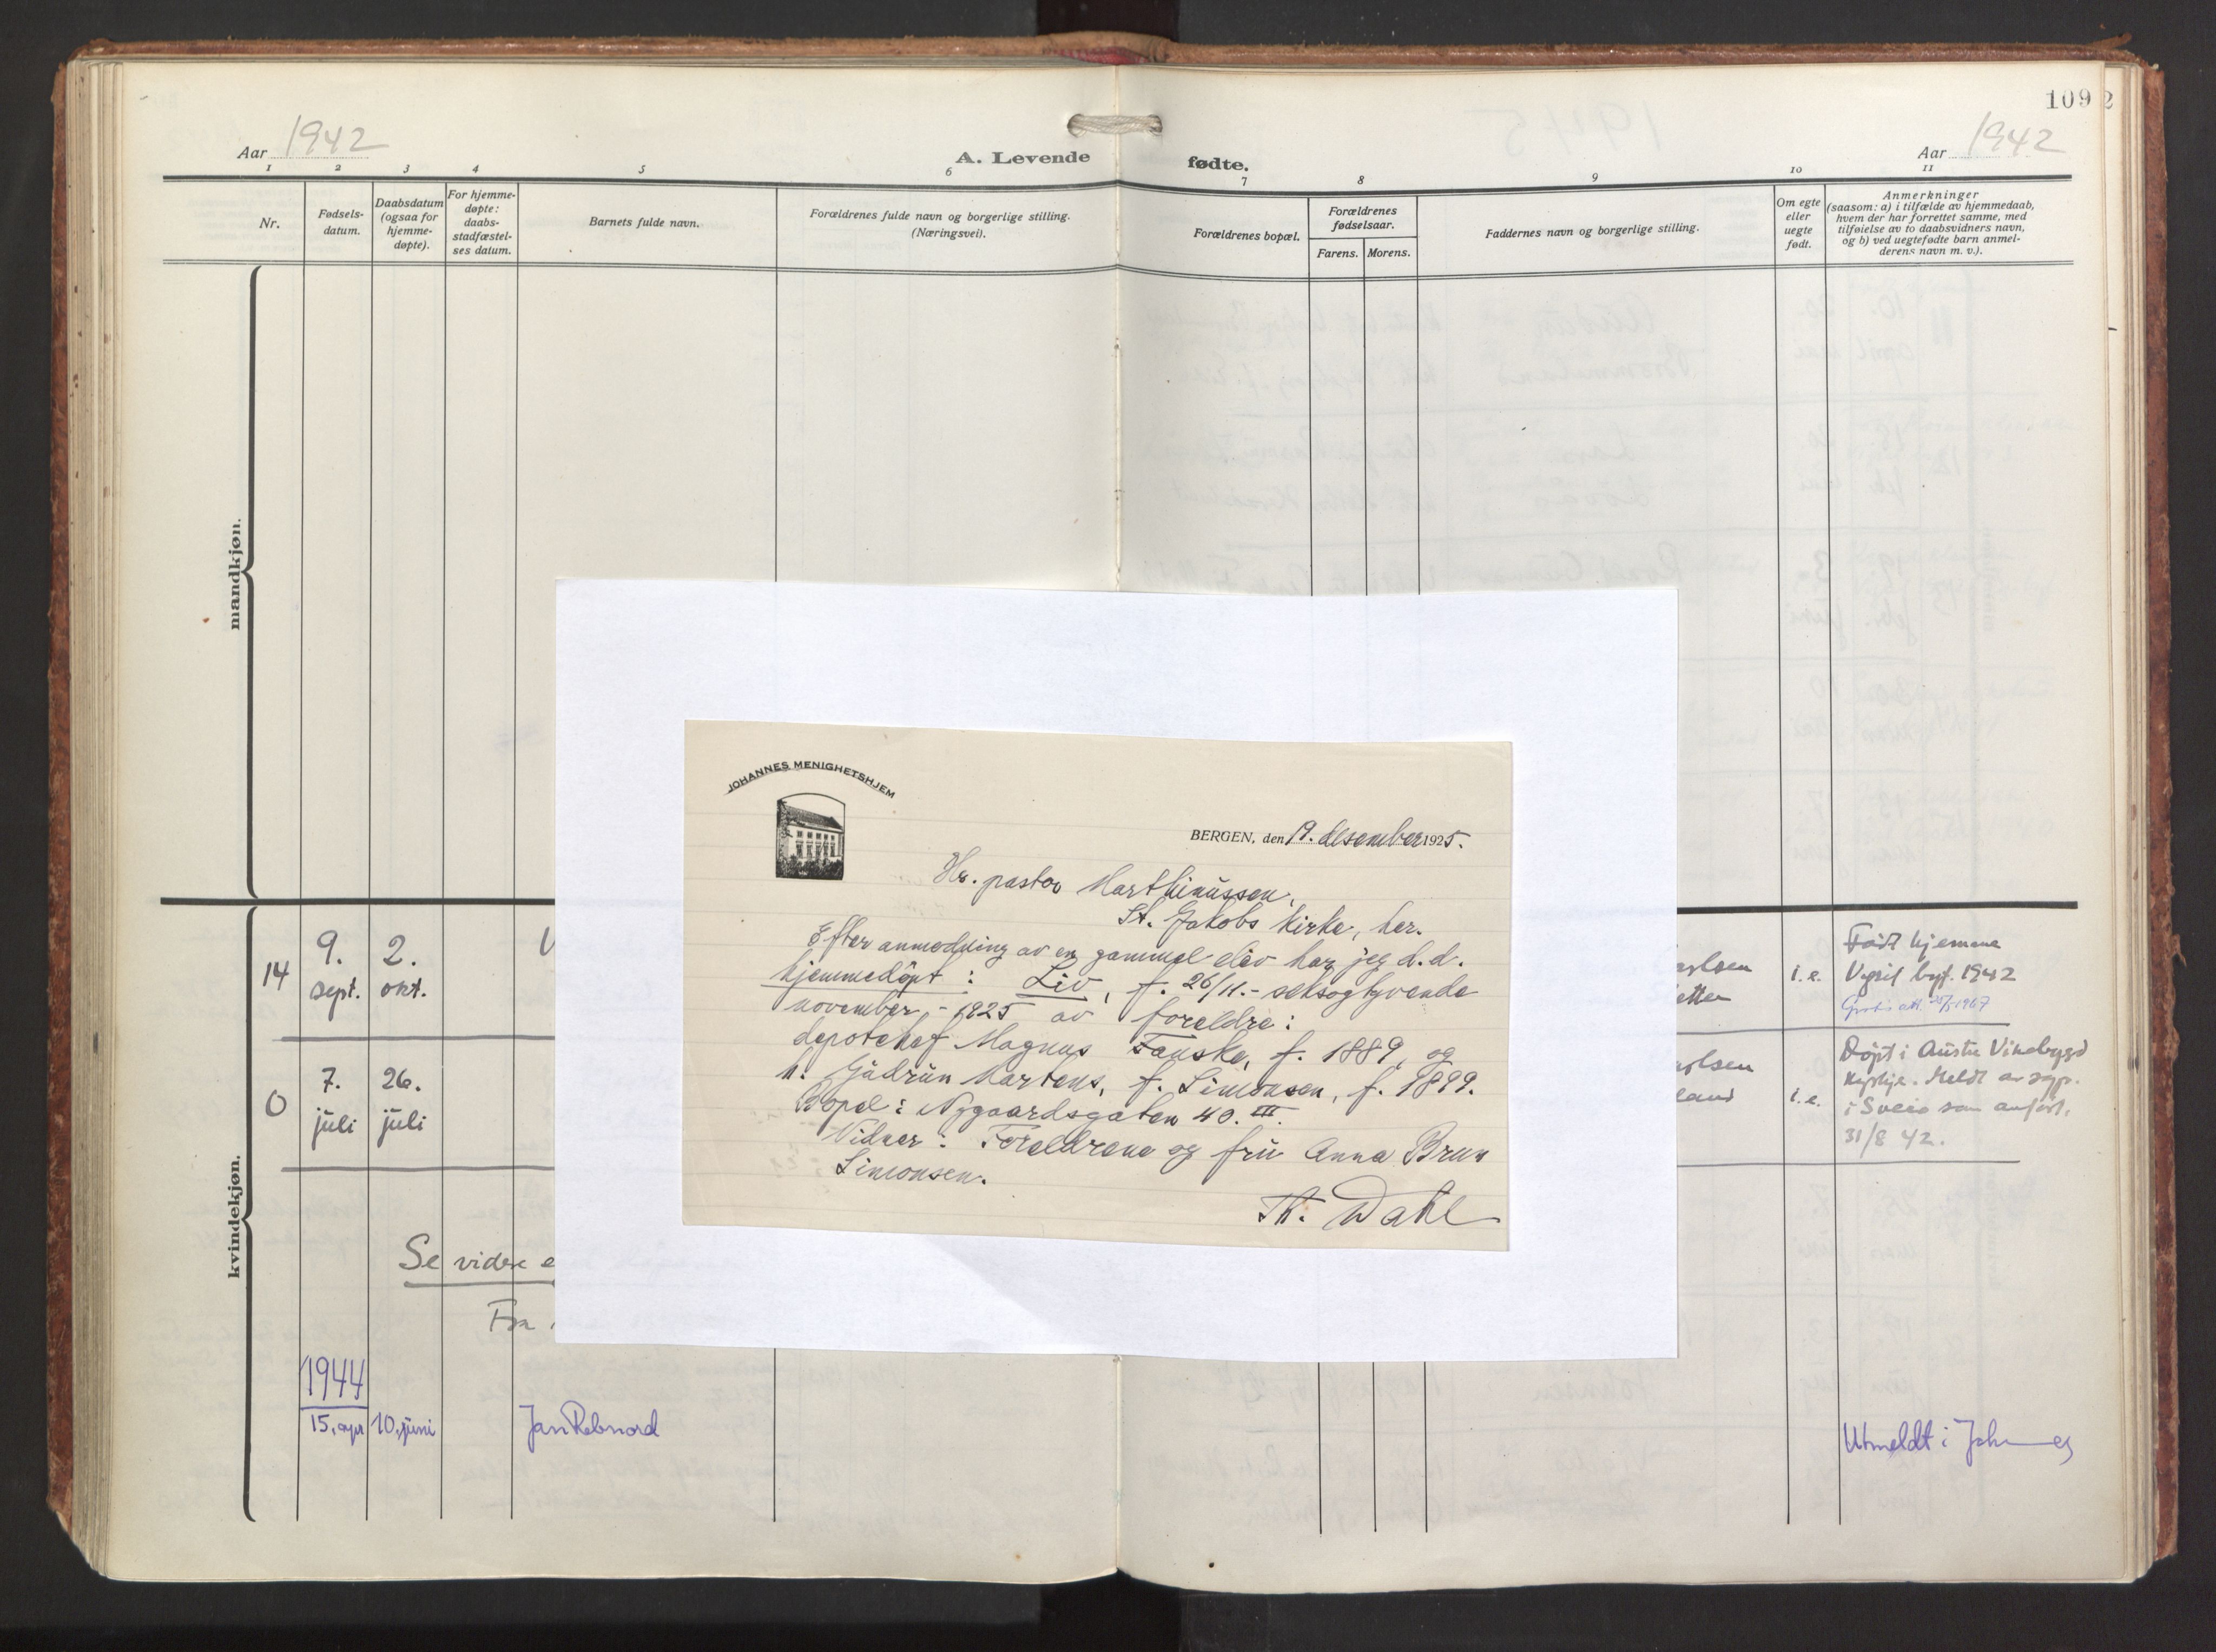 109 2
Aar 1942
A. Levende
fødte.
Aar 1942
1 2 3 4 5 6 7 8 9 10 11
Nr.
Fødsels-
datum.
Daabsdatum
(ogsaa for
hjemme-
døpte).
For hjemme-
døpte:
daabs-
stadfæstel-
ses datum.
Barnets fulde navn.
Forældrenes fulde navn og borgerlige stilling.
(Næringsvei).
Forældrenes bopæl.
Forældrenes
fødselsaar.
Farens. Morens.
Faddernes navn og borgerlige stilling.
Om egte
eller
uegte
født.
Anmerkninger
(saasom: a) i tilfælde av hjemmedaab,
hvem der har forrettet samme, med
tilføielse av to daabsvidners navn,
og b) ved uegtefødte barn anmel-
derens navn m. v.).
mandkjøn.
JOHANNES MENIGHETSHJEM
BERGEN, den 19. desember 1925.
Hr. pastor Marthinussen,
St. Jakobs kirke, her.
Efter anmodning av en gammel elev har jeg d.d.
hjemmedøpt: Liv, f. 26/11.- seksogtyvende
november - 1925 av foreldre:
depotchef Magnus Fauske, f. 1889, og
h. Gudrun Martens, f. Simonsen, f. 1899.
Bopel: Nygaardsgaten 40. III.
Vidner: Foreldrene og fru Anna Brun
Simonsen.
Th. Dahl
kvindekjøn.
14
9.
sept.
2.
okt.
i. e.
Født hjemme
1942
0
7.
juli
26.
juli
i. e.
Døpt i
Meldt av sogn.
i Sveio som anført.
31/8 42.
Se videre e
Fra
1944
15. apr 10. juni Jan Rebnord
Utmeldt i Johannes